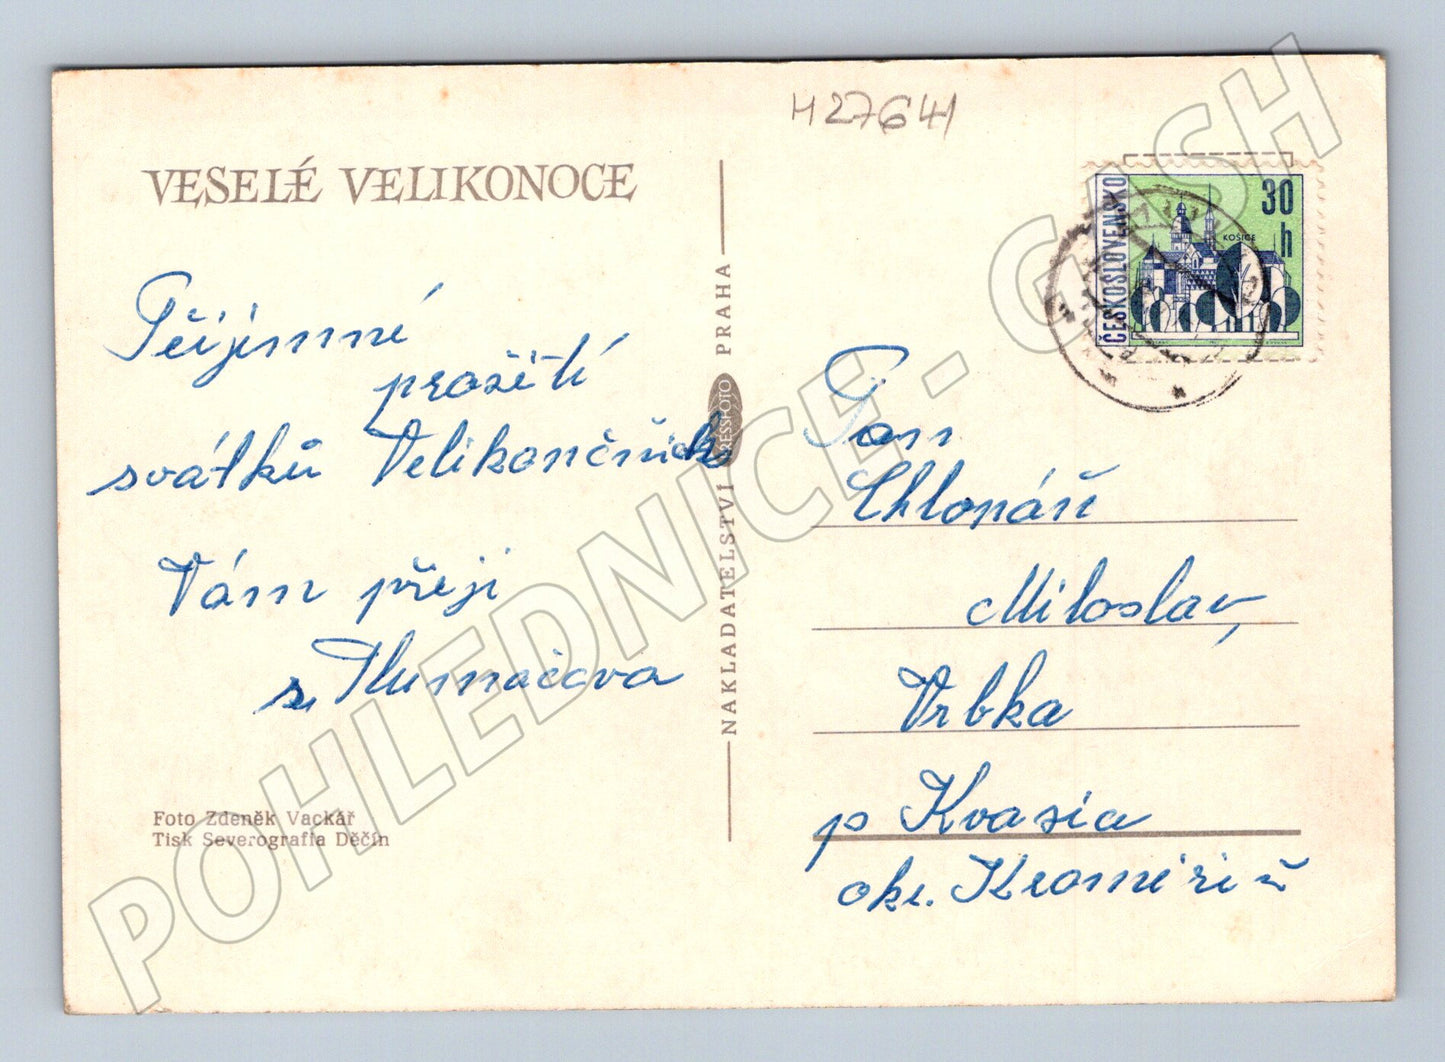 H27641
VESELÉ VELIKONOCE
Příjemné
prožití
svátků Velikonočních
Vám přeji
Foto Zdeněk Vackář
Tisk Severografia Děčín
NAKLADATELSTVÍ PRESSFOTO PRAHA
ČESKOSLOVENSKO
30 h
KOŠICE
Pan
Miloslav,
Vrbka
p Kvasia
okr. Kroměříž
POHLEDNICE - GUSH